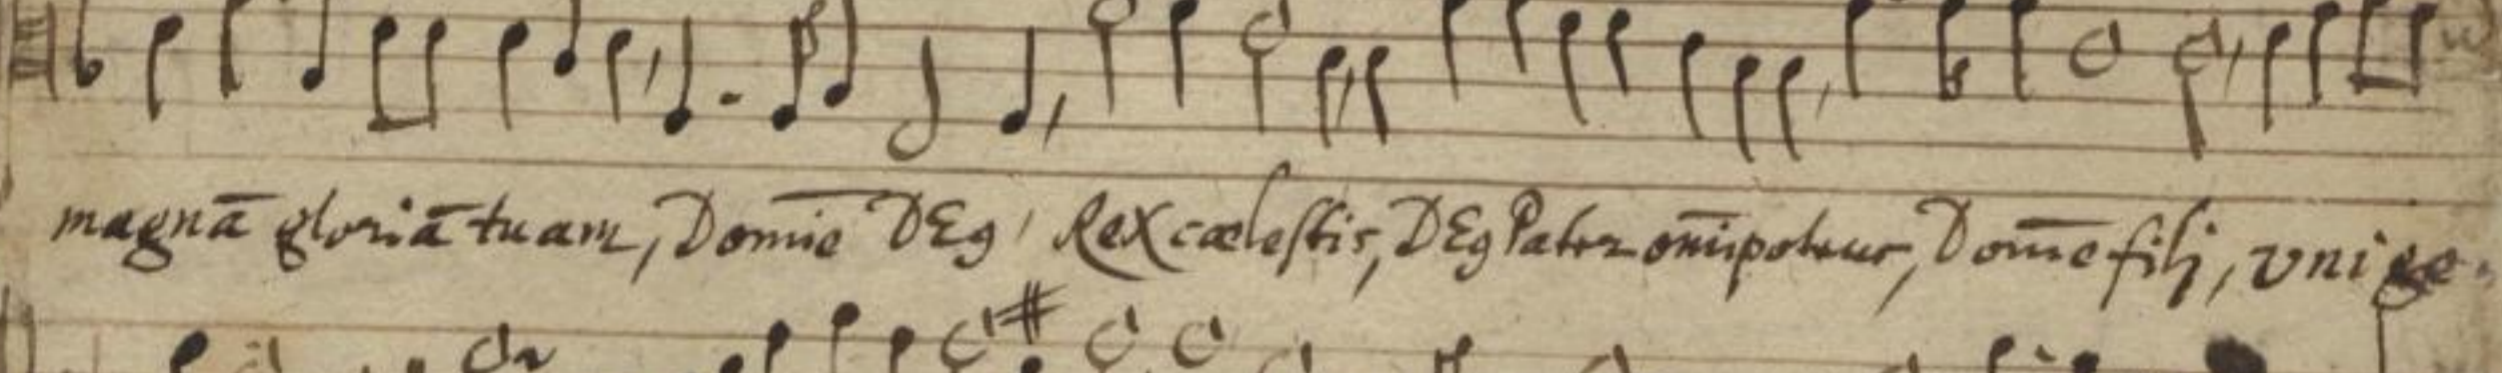 magnā gloriā tuam, Dom̄ie DEꝯ, Rex cælestis, DEꝯ Pater om̄ipotens, Dom̄e filj, vnige-